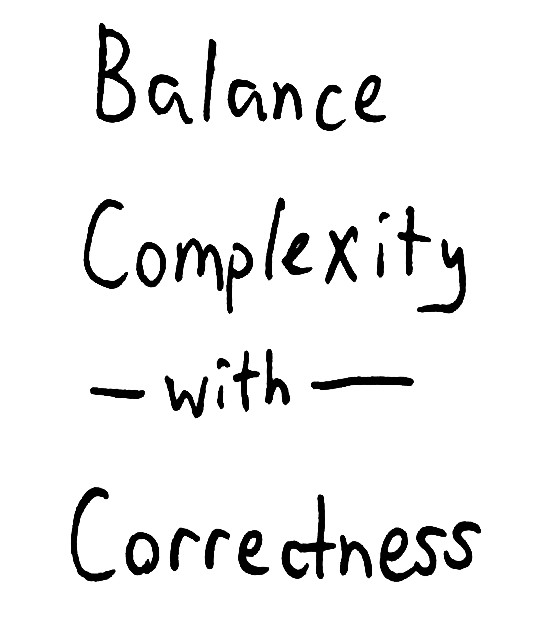 Balance
Complexity
— with —
Correctness